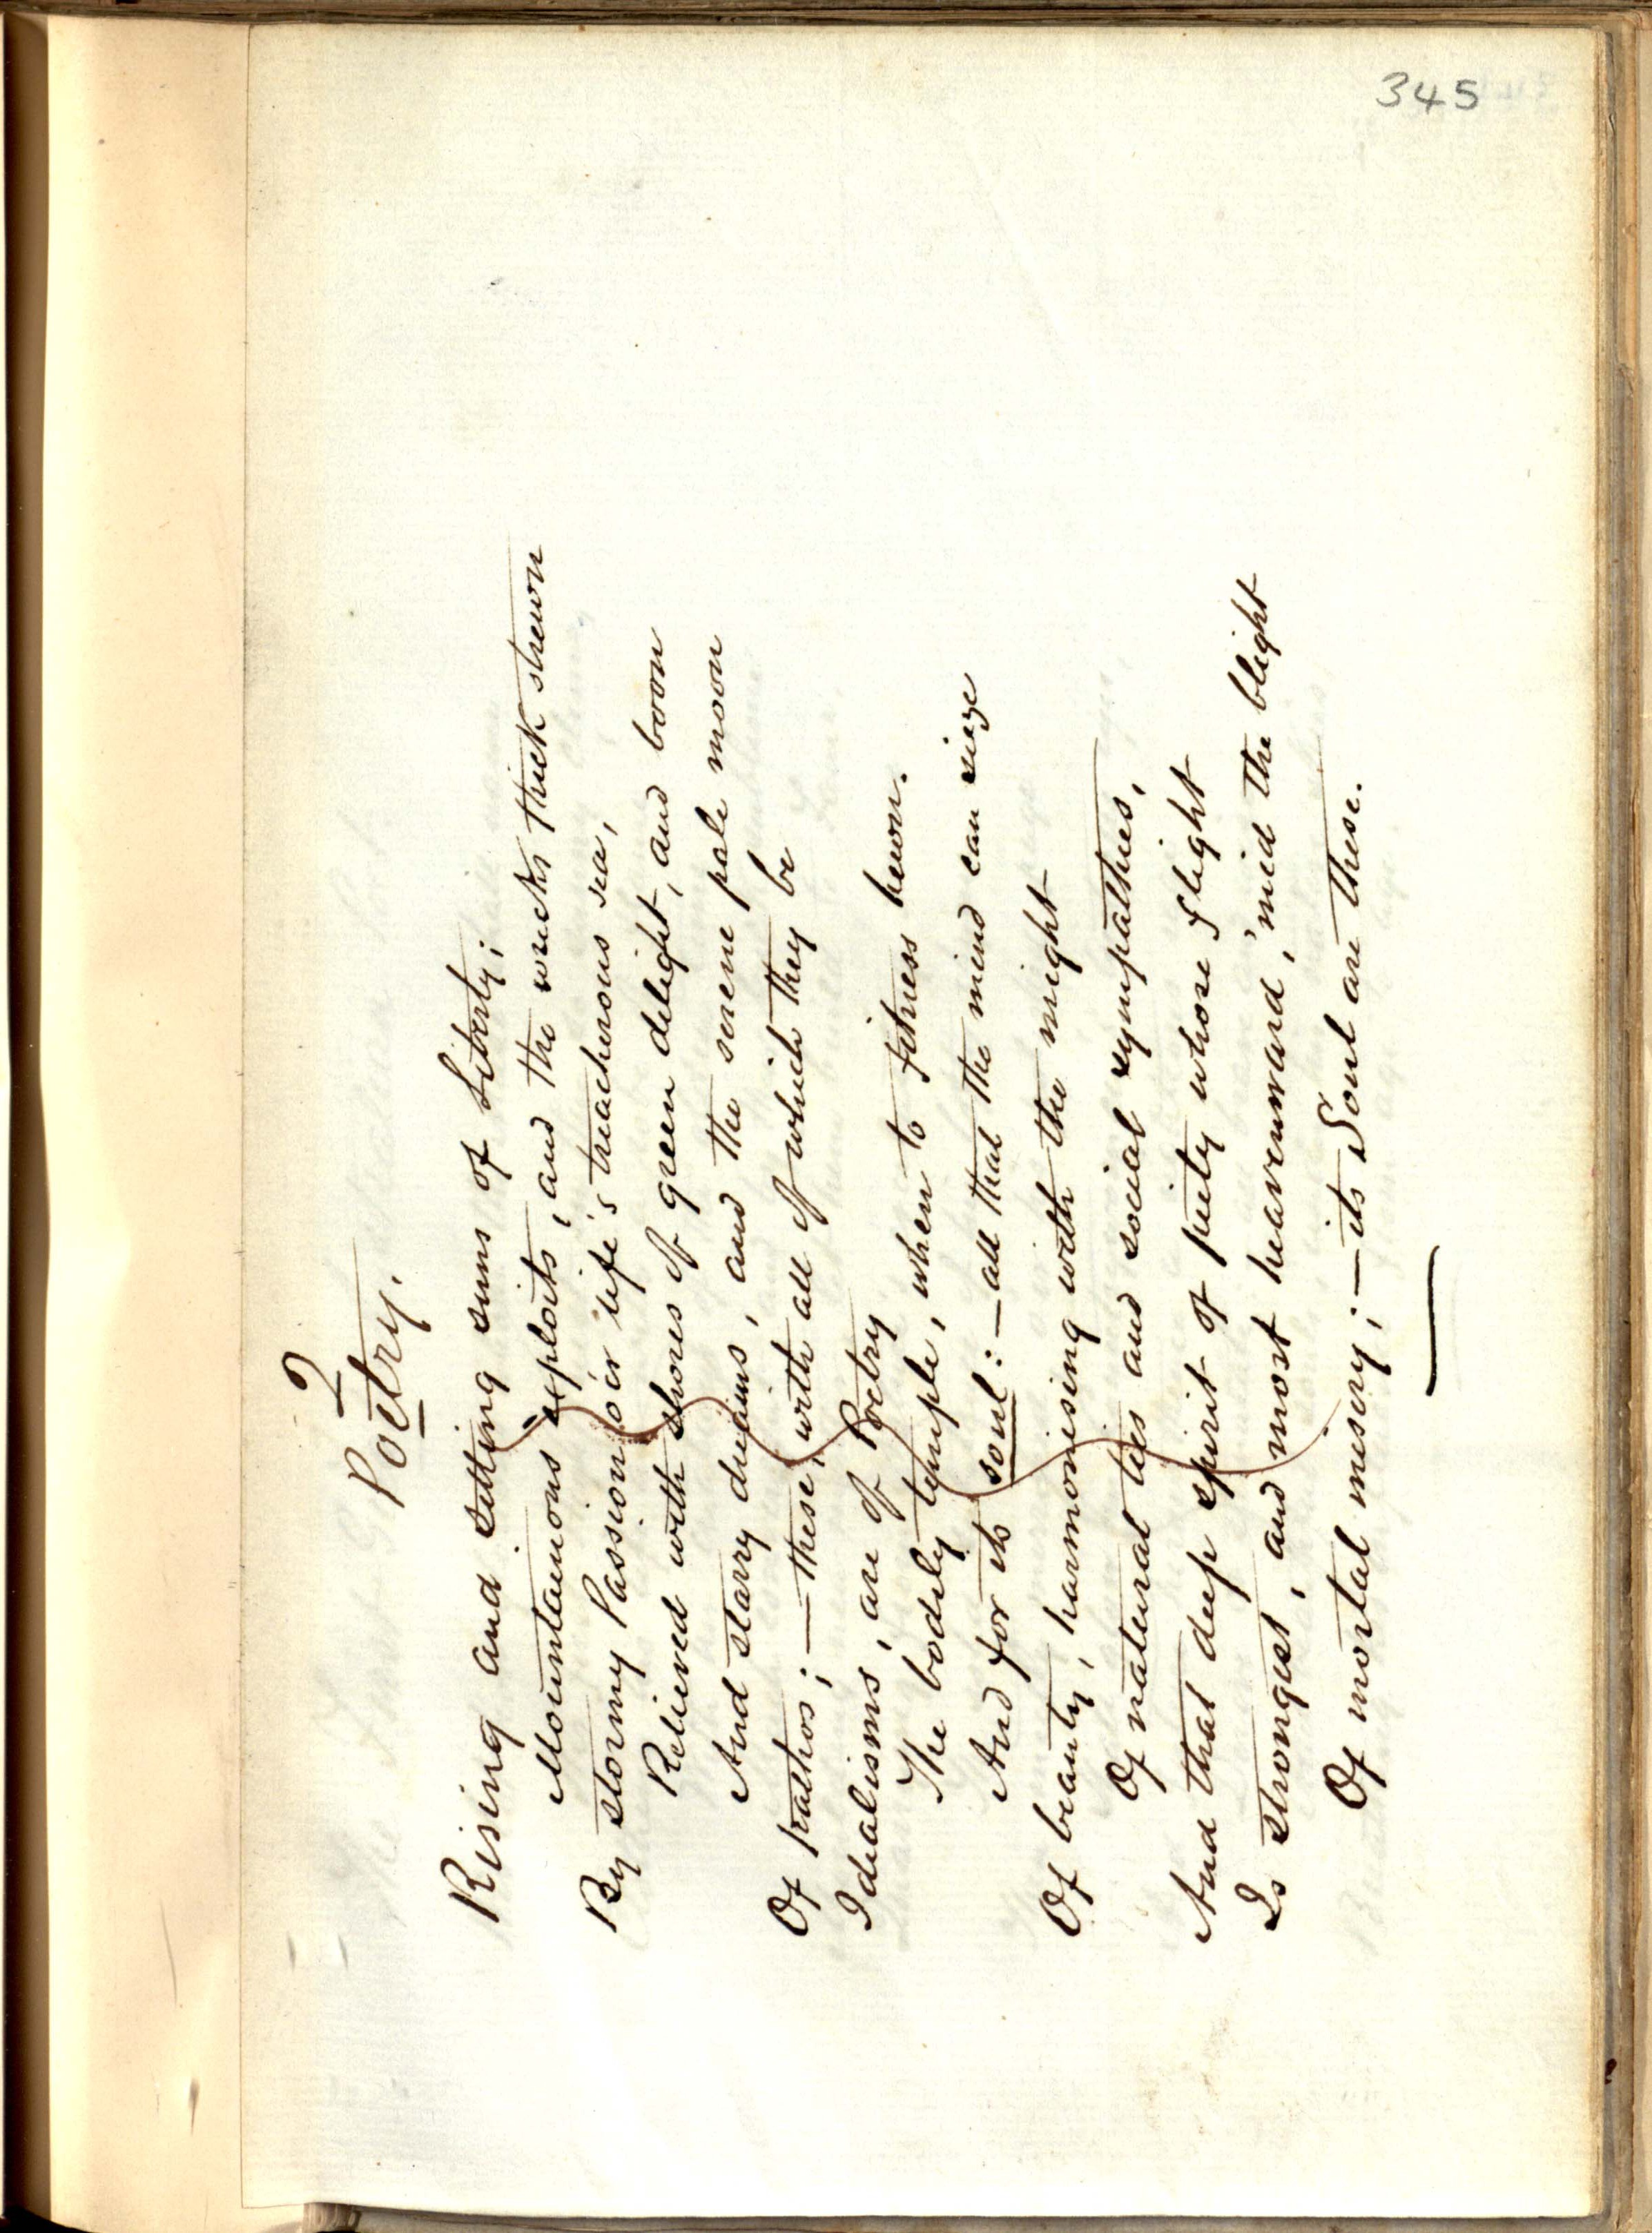 345
2
Poetry.
Rising and setting suns of Liberty;
Mountainous exploits, and the wrecks thick strewn
By stormy Passion o'er life's treacherous sea,
Relieved with shores of green delight, and boon
And starry dreams, and the serene pale moon
Of pathos; — these, with all of which they be
Idealisms, are of Poetry
The bodily temple, when to fitness hewn.
And for its soul: — all that the mind can sieze
Of beauty, harmonising with the might
Of natural ties and social sympathies,
And that deep spirit of piety whose flight
Is strongest, and most heavenward, 'mid the blight
Of mortal misery; — its Soul are these.